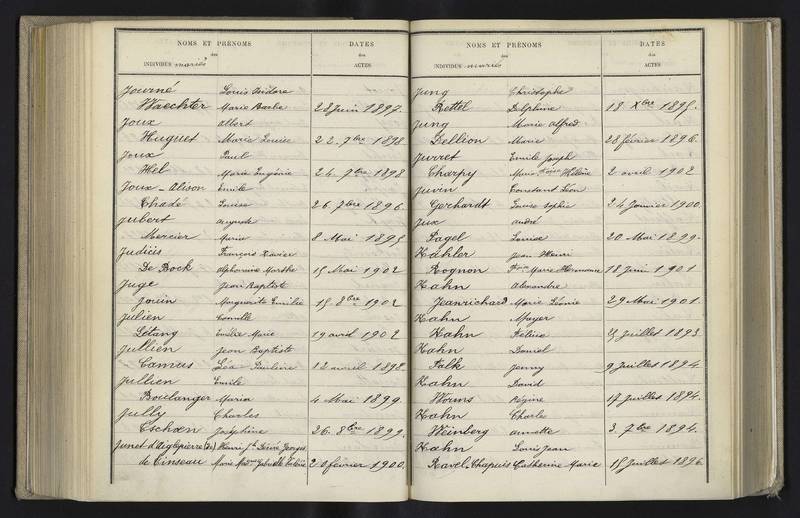 NOMS ET PRÉNOMS
des
INDIVIDUS mariés
DATES
des
ACTES
Journé Louis Isidore
Waechter Marie Barbe 28 Juin 1897.
Joux Albert
Huguet Marie Louise 22. 7bre 1898
Joux Paul
Hel Marie Eugénie 24. 7bre 1898
Joux-Alison Emile
Chadé Louise 26. 7bre 1896.
Jubert Auguste
Mercier Maria 8 Mai 1895
Judicis François Xavier
De Bock Alphonsine Marthe 15 Mai 1902
Juge Jean Baptiste
Jouin Marguerite Emilie 15 8bre 1902
Julien Camille
Létang Emélie Marie 19 avril 1902
Jullien Jean Baptiste
Camus Léa Pauline 12 avril 1898.
Jullien Emile
Boulanger Maria 4 Mai 1899
Jully Charles
Eschen Joséphine 26. 8bre 1899.
Junet d'Aiglepierre (de) Henri Jh Désiré Georges
de Tinseau Marie Gabrielle Valérie 20 février 1900.
NOMS ET PRÉNOMS
des
INDIVIDUS mariés
DATES
des
ACTES
Jung Christophe
Rettel Delphine 18 Xbre 1895.
Jung Marie Alfred
Dellion Marie 28 février 1896.
Jurret Emile Joseph
Charpy Marie Hélène 2 avril 1902
Juvin Constant Léon
Gerhardt Louise Sophie 24 Janvier 1900.
Jux André
Pagel Louise 20 Mai 1899.
Kahler Jean Henri
Rognon Marie Hermance 18 Juin 1901
Kahn Alexandre
Jeanrichard Marie Léonie 29 Mai 1901.
Kahn Mayer
Kahn Hélène Juillet 1893
Kahn Daniel
Falk Jenny 9 Juillet 1894.
Kahn David
Worms Régine Juillet 1894.
Kahn Charle
Weinberg Annette 3. 7bre 1894.
Kahn Louis Jean
Ravel-Chapuis Catherine Marie 15 Juillet 1896